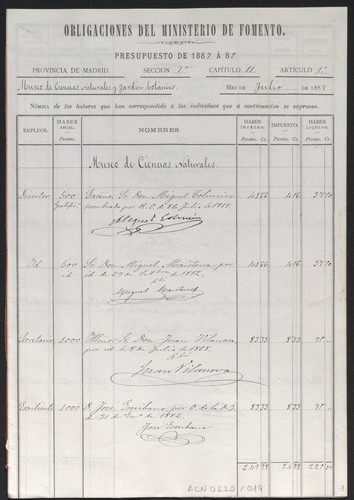 OBLIGACIONES DEL MINISTERIO DE FOMENTO.
PRESUPUESTO DE 1887 Á 88
PROVINCIA DE MADRID. SECCIÓN 7ª CAPÍTULO 11 ARTÍCULO 1º
Museo de Ciencias Naturales y Jardín Botánico. MES DE Julio DE 1887
NÓMINA de los haberes que han correspondido á los individuos que á continuación se expresan.
EMPLEOS. HABER ANUAL. Pesetas. NOMBRES. HABER ÍNTEGRO. Pesetas. Cs. IMPUESTO. Pesetas. Cs. HABER LÍQUIDO. Pesetas. Cs.
Museo de Ciencias Naturales.
Director 500 Excmo. Sr. Don Miguel Colmeiro 4166 416 3750
nombrado por R. O. de 8 de Julio de 1868.
Miguel Colmeiro
Id 500 Sr. Don Miguel Maisterra por 4166 416 3750
id. de 29 de 1882.
Miguel Maisterra
Secretario 1000 Illmo. Sr. Don Juan Vilanova 8333 833 75 "
por id. de 8 de Julio de 1868.
Juan Vilanova
Escribiente 1000 D. José Escribano por O. de la D. G. 8333 833 75 "
de 31 de 1882.
José Escribano
24998 2498 225 "
ACN0220/019
1